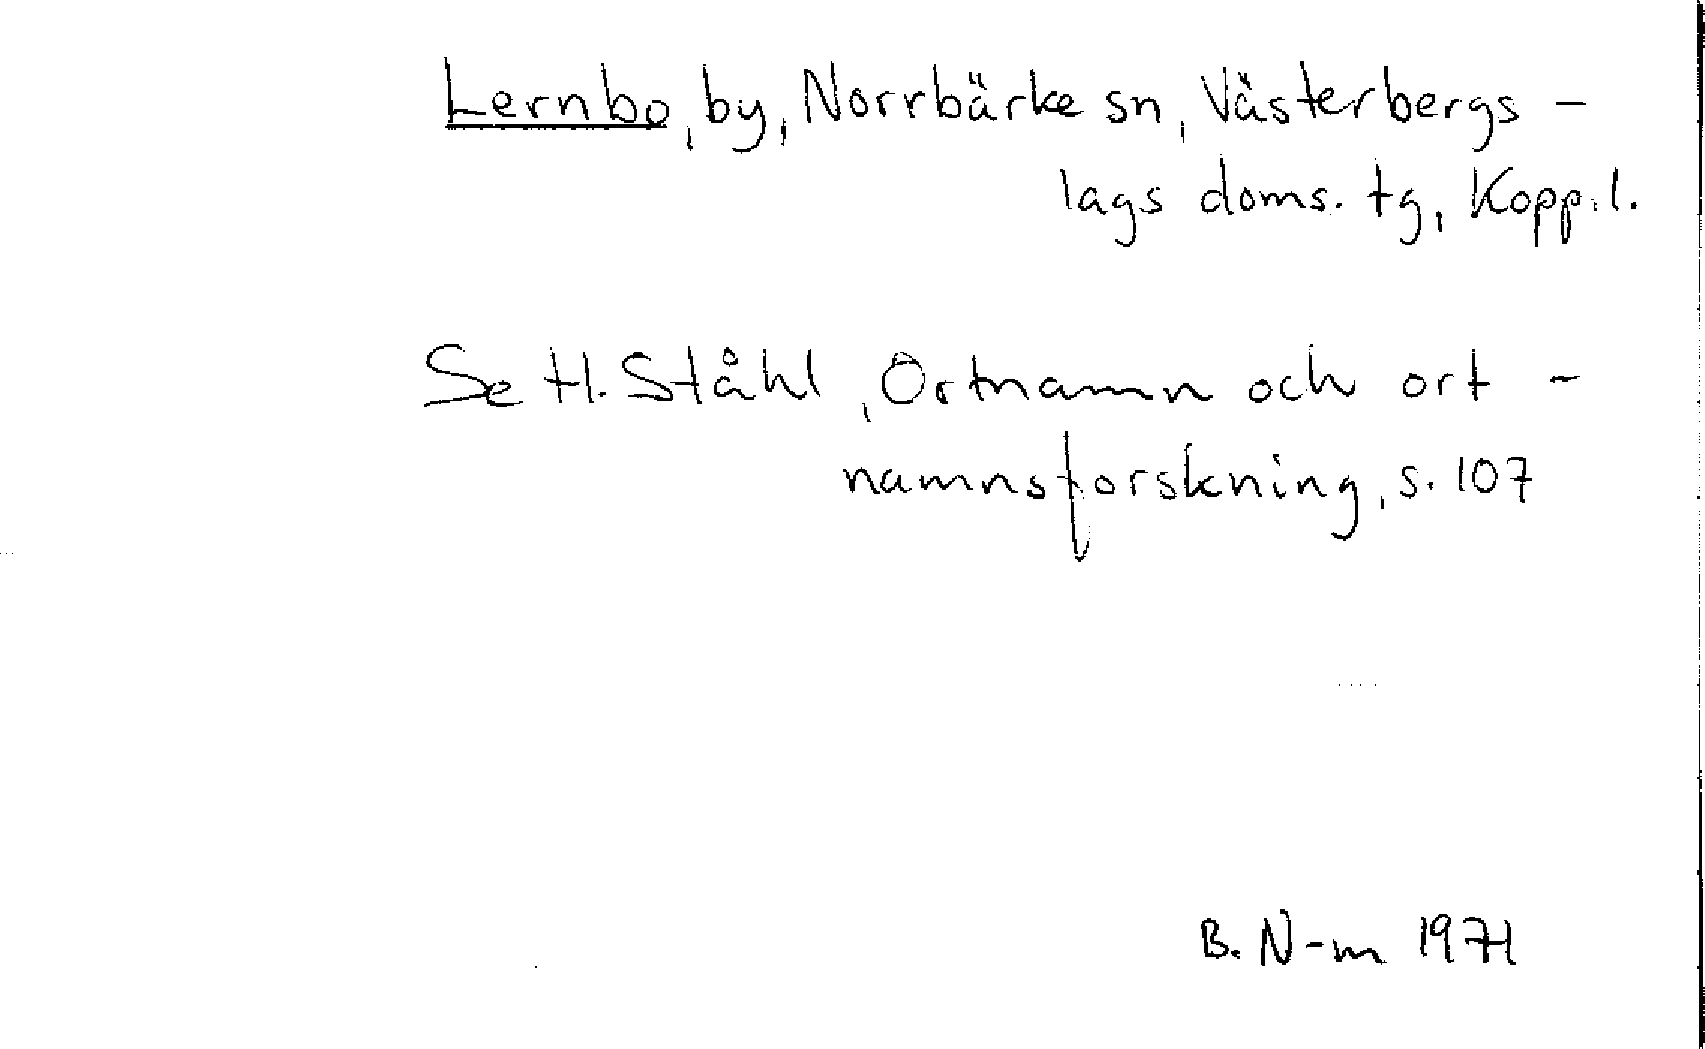 Lernbo, by, Norrbärke sn, Västerbergs-
lags doms. tg, Kopp. l.
Se H. Ståhl, Ortnamn och ort-
namnsforskning, s. 107
B. N-m 1971